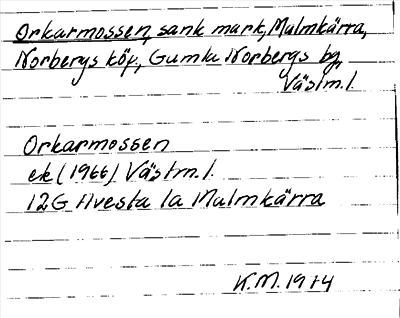 Orkarmossen, sank mark, Malmkärra,
Norbergs köp., Gamla Norbergs bg,
Västm.l.
Orkarmossen
ek (1966) Västm.l.
12G Avesta 1a Malmkärra
K.M. 1974